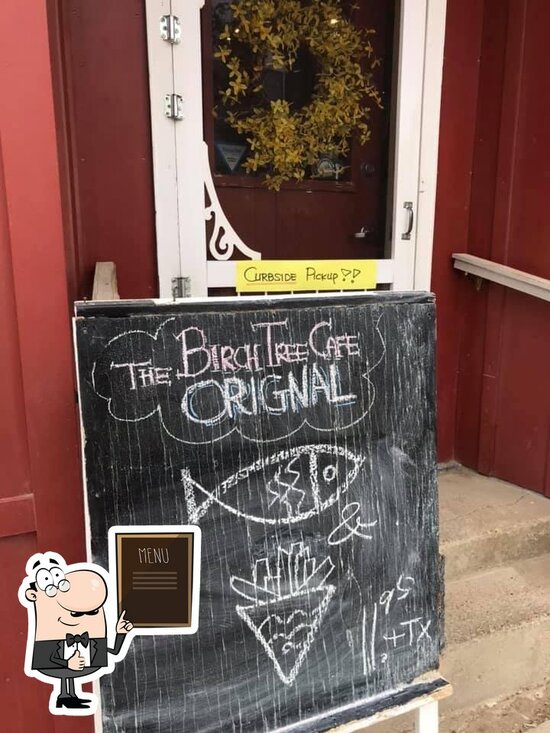 CURBSIDE PICKUP!!
THE BIRCH TREE CAFE
ORIGNAL
&
11.95
+TX
MENU